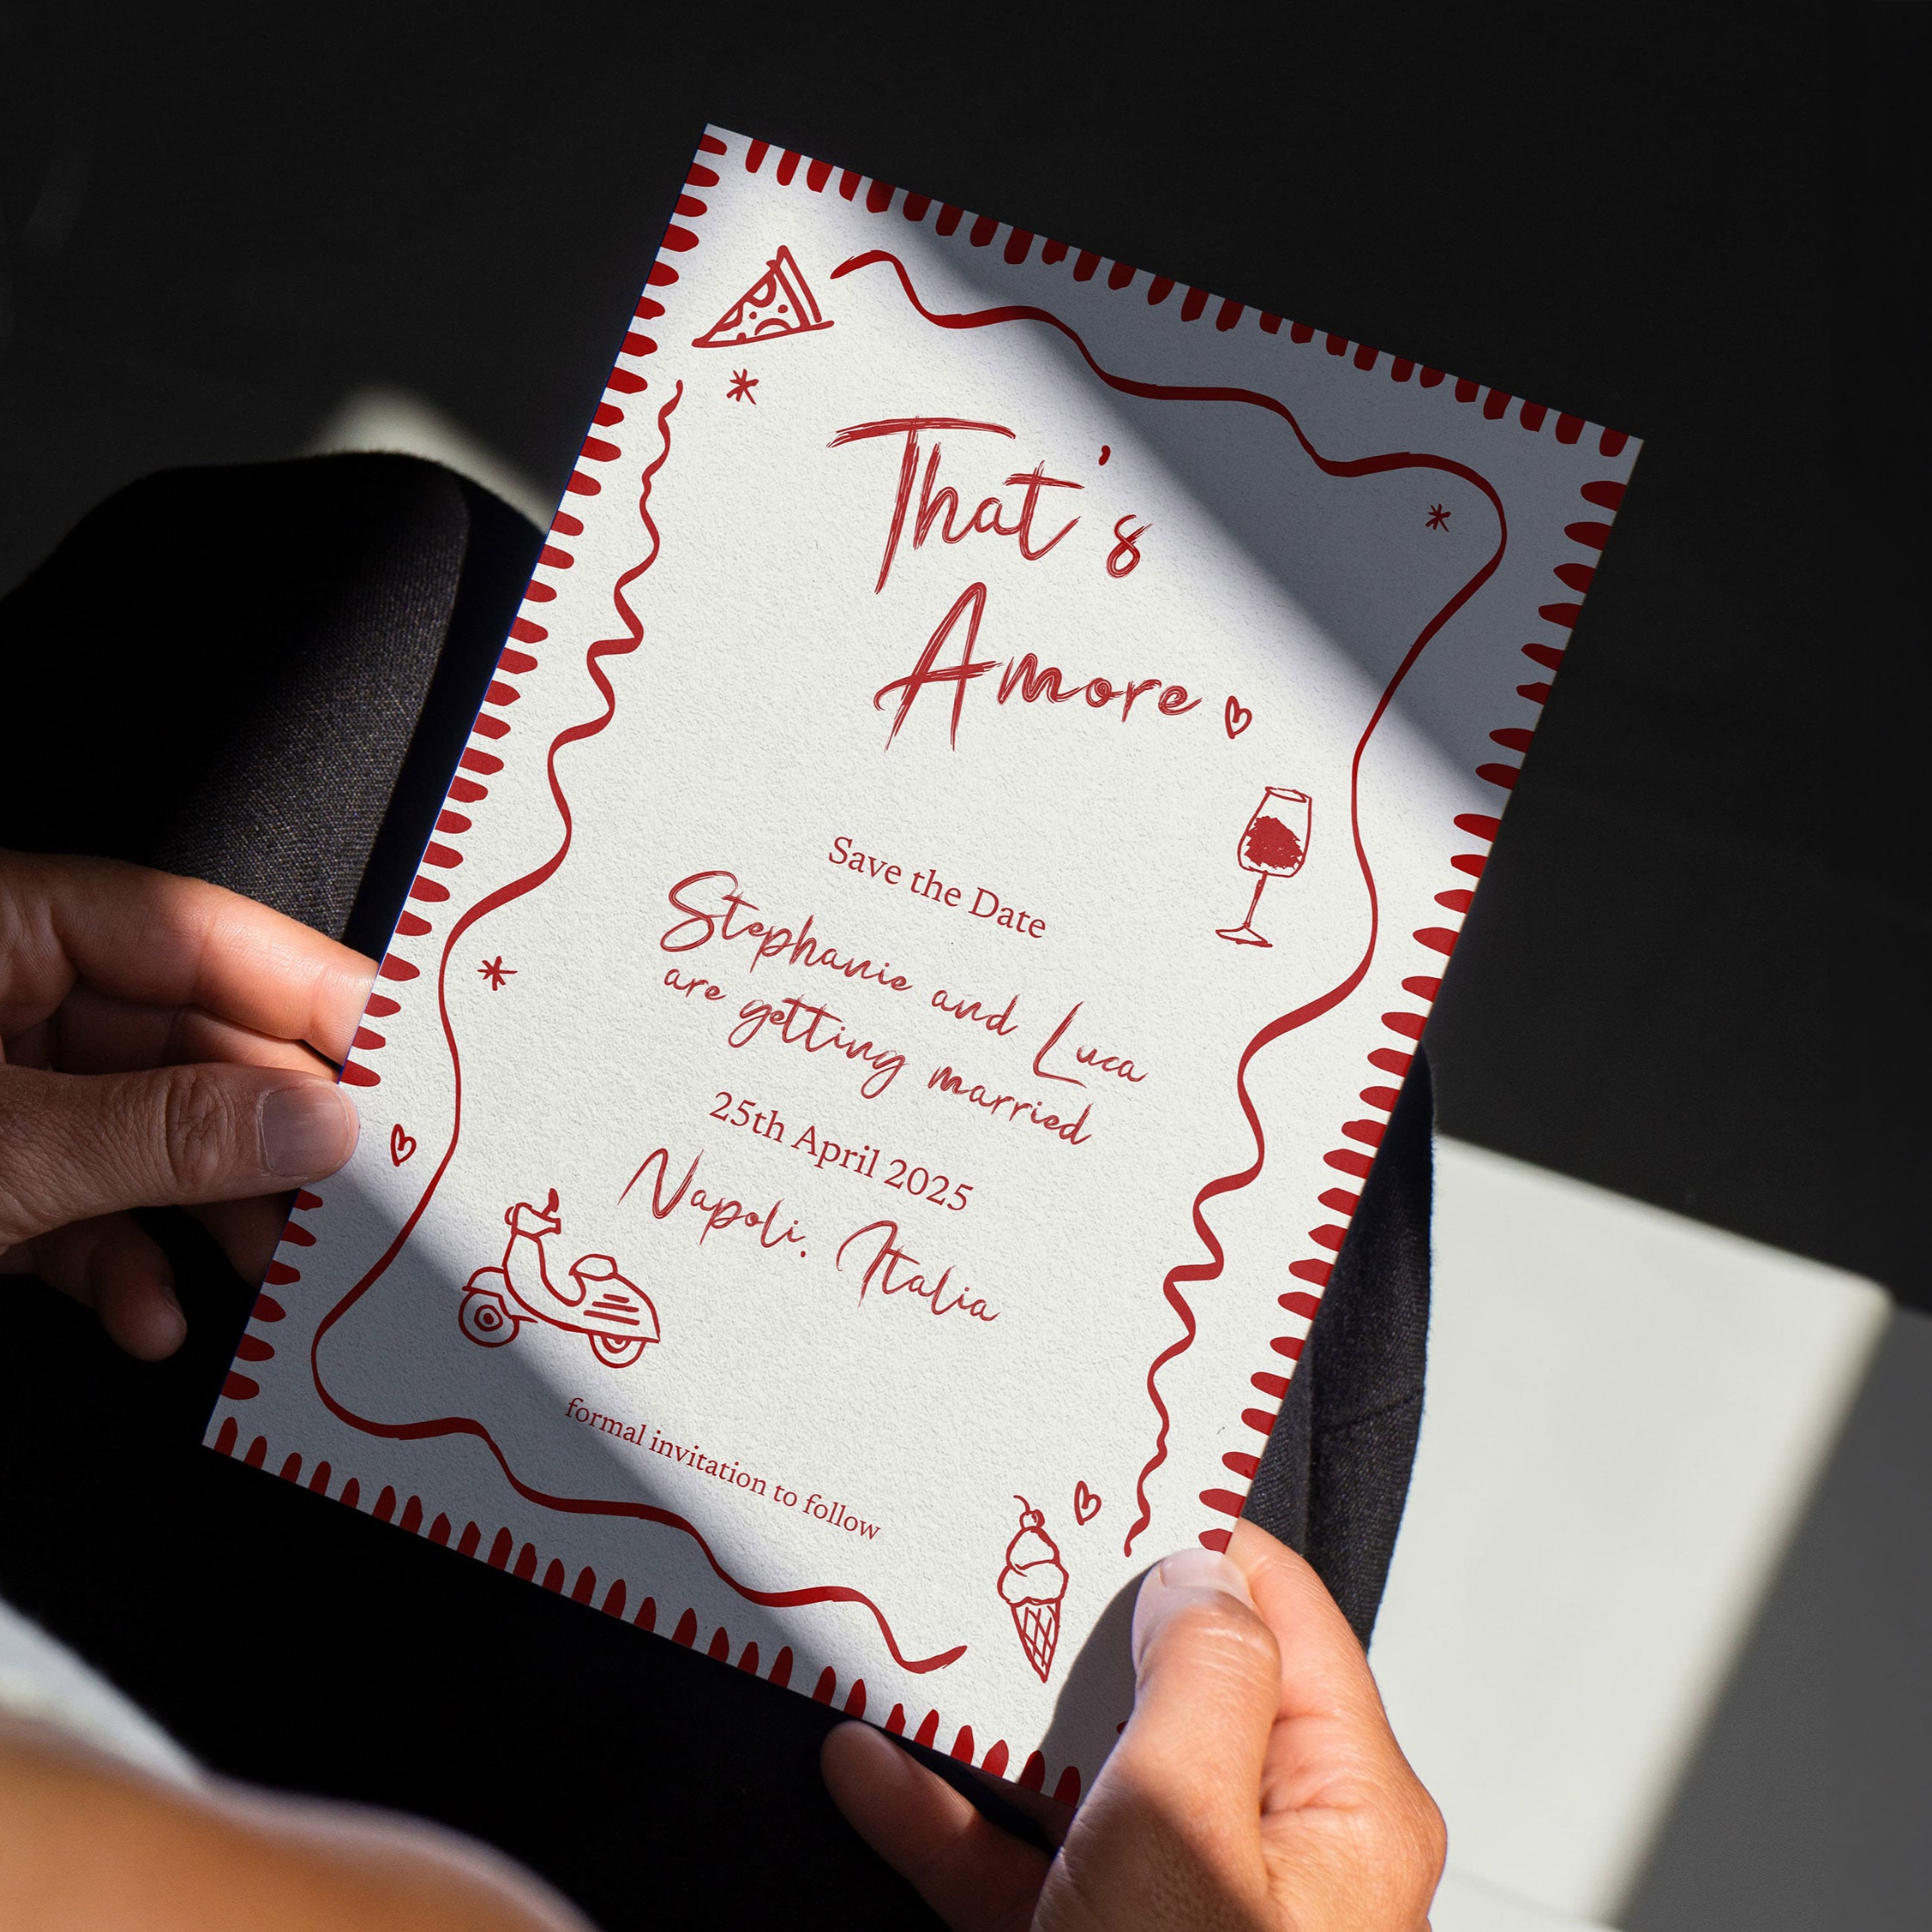 That's
Amore
Save the Date
Stephanie and Luca
are getting married
25th April 2025
Napoli. Italia
formal invitation to follow